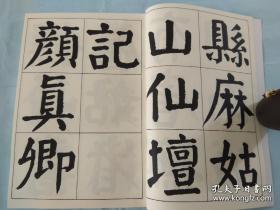 縣麻姑
山仙壇
記
顏真卿
孔夫子旧书网